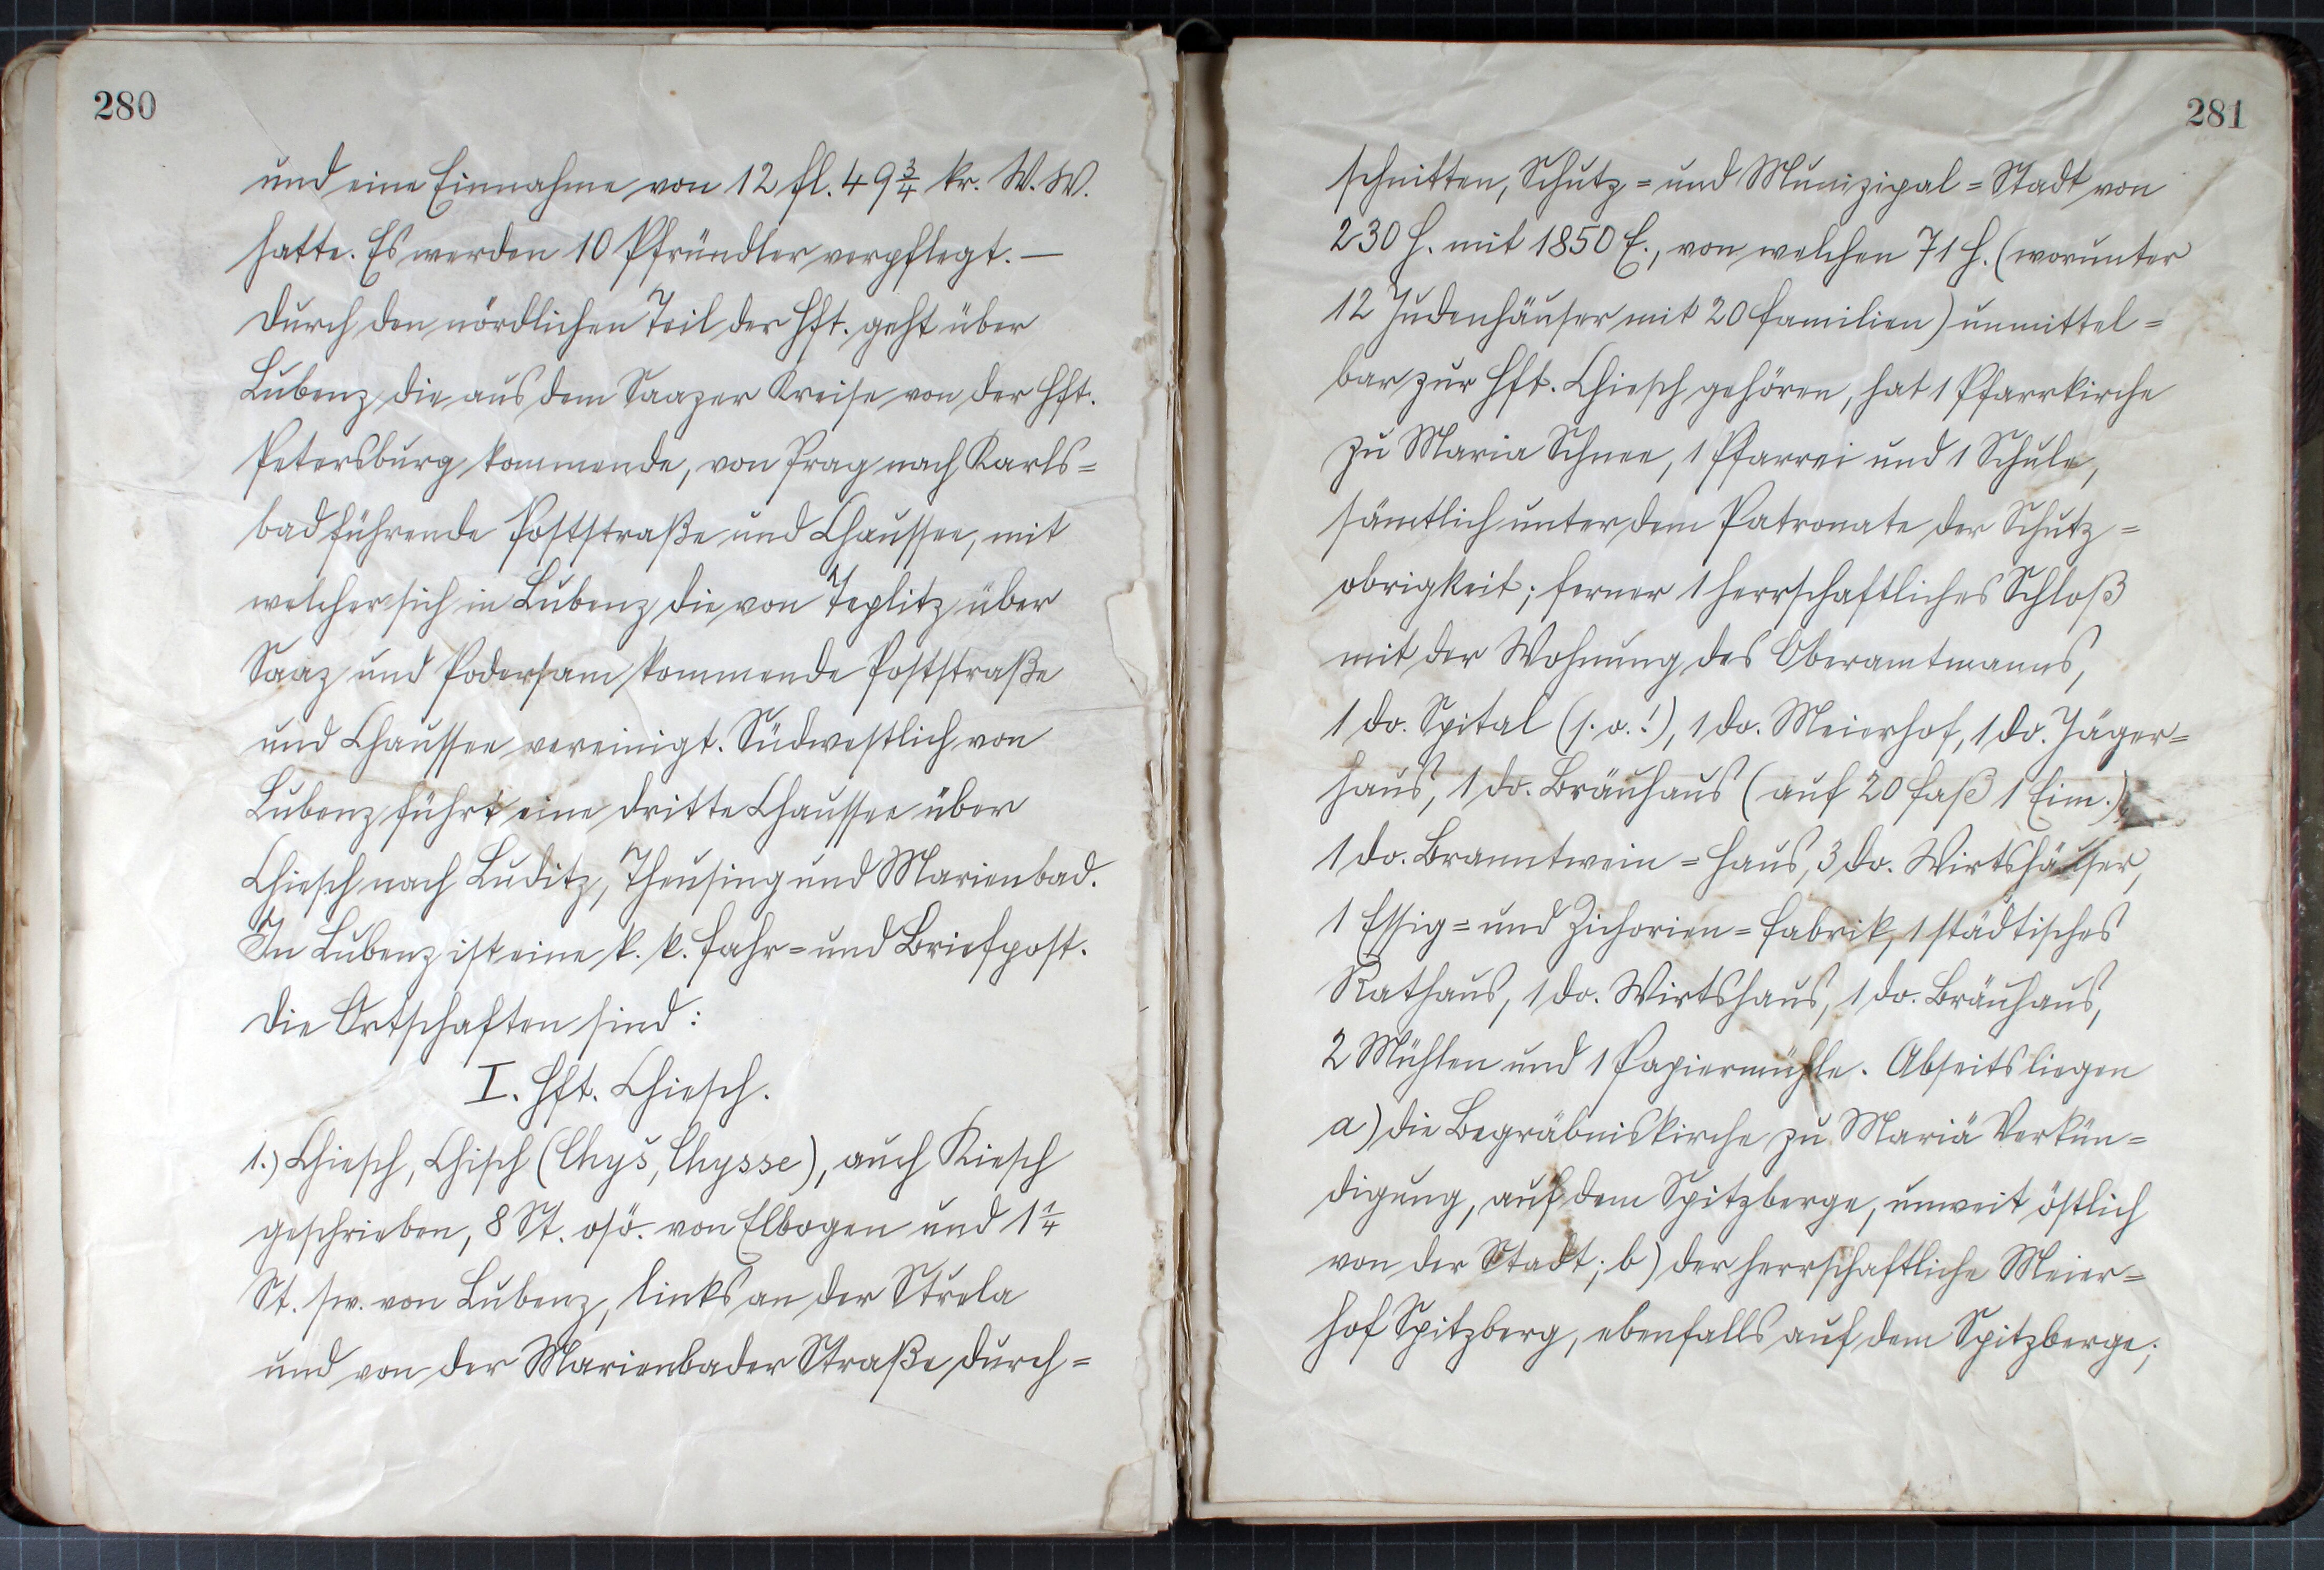 280
und eine Einnahme von 12 fl. 49 3/4 kr. W. W.
hatte. Es werden 10 Pfründler verpflegt. —
Durch den nördlichen Teil der Hft. geht über
Lubenz die aus dem Saazer Kreise von der Hft.
Petersburg kommende, von Prag nach Karls=
bad führende Poststraße und Chaussee, mit
welcher sich in Lubenz die von Teplitz über
Saaz und Podersam kommende Poststraße
und Chaussee vereinigt. Südwestlich von
Lubenz führt eine dritte Chaussee über
Chiesch nach Luditz, Theusing und Marienbad.
In Lubenz ist eine k. k. Fahr= und Briefpost.
Die Ortschaften sind:
I. Hft. Chiesch.
1.) Chiesch, Chisch (Chyš, Chysse), auch Kiesch
geschrieben, 8 St. osö. von Elbogen und 1 1/4
St. sw. von Lubenz, links an der Strela
und von der Marienbader Straße durch=
281
schnitten, Schutz= und Munizipal=Stadt von
230 H. mit 1850 E., von welchen 71 H. (worunter
12 Judenhäuser mit 20 Familien) unmittel=
bar zur Hft. Chiesch gehören, hat 1 Pfarrkirche
zu Maria Schnee, 1 Pfarrei und 1 Schule,
sämtlich unter dem Patronate der Schutz=
obrigkeit; ferner 1 herrschaftliches Schloß
mit der Wohnung des Oberamtmanns,
1 do. Spital (s. o.!), 1 do. Meierhof, 1 do. Jäger=
haus, 1 do. Bräuhaus (auf 20 Faß 1 Eim.),
1 do. Branntwein=Haus, 3 do. Wirtshäuser,
1 Essig= und Zichorien=Fabrik, 1 städtisches
Rathaus, 1 do. Wirtshaus, 1 do. Bräuhaus,
2 Mühlen und 1 Papiermühle. Abseits liegen
a) die Begräbniskirche zu Mariä Verkün=
digung, auf dem Spitzberge, unweit östlich
von der Stadt; b) der herrschaftliche Meier=
hof Spitzberg, ebenfalls auf dem Spitzberge;